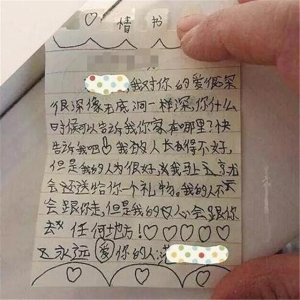 ♡ 情书
我对你的爱很深
很深像无底洞一样深,你什么
时候可以告诉我你家在哪里?快
告诉我吧!我的人长有得不好,
但是我的人为很好,这我马上
会还送给你一个礼物。我的人不
会跟你走,但是我的心会跟你
去任何地方!♡♡♡♡♡
永远爱你的人: